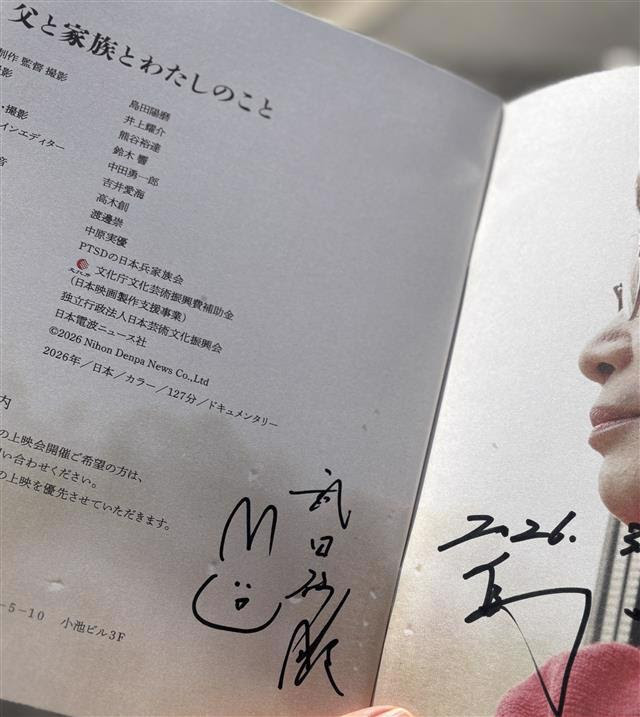 父と家族とわたしのこと
制作 監督 撮影
島田陽磨
井上耀介
・撮影
熊谷裕達
インエディター
鈴木 響
中田勇一郎
音
吉井愛海
高木創
渡邊崇
中原実優
PTSDの日本兵家族会
文化庁文化芸術振興費補助金
(日本映画製作支援事業)
独立行政法人日本芸術文化振興会
日本電波ニュース社
©2026 Nihon Denpa News Co.,Ltd
2026年/日本/カラー/127分/ドキュメンタリー
内
の上映会開催ご希望の方は、
い合わせください。
の上映を優先させていただきます。
-5-10 小池ビル3F
2026.